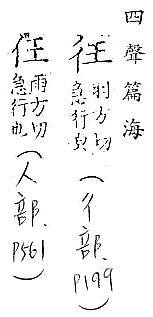 四聲篇海
羽方切
急行皃
(彳部. P199)
雨方切
急行也
(人部. P561)